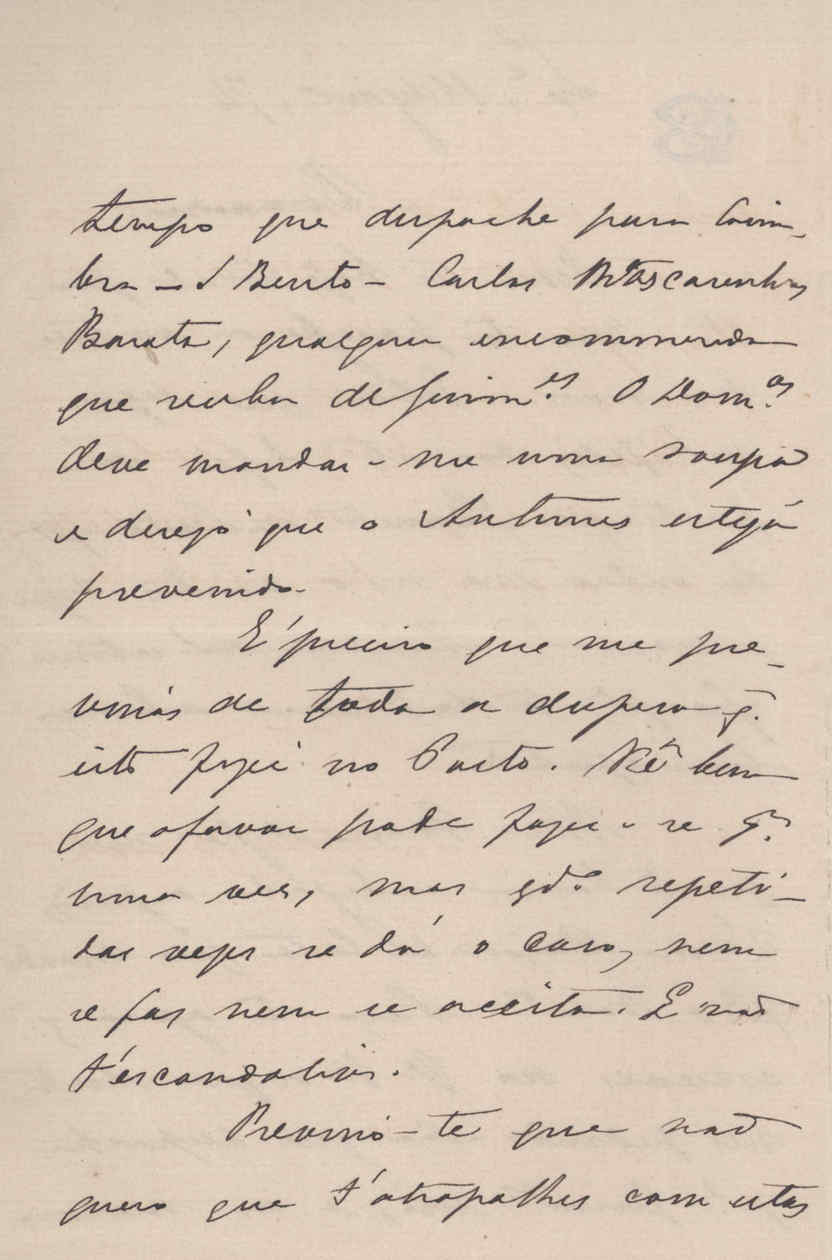 tempo que despache para Coim-
bra - S Bento - Carlos Mascarenhas
Barata, qualquer encommenda
que venha de Guim.es O Dom.os
deve mandar-me uma roupa
e desejo que o Antunes esteja
prevenido.
E' preciso que me pre-
vinas de toda a despesa q.
isto fizer no Porto. Vê bem
que o favor pode fazer-se p.r
uma vez, mas qd.o repeti-
das vezes se dá o caso, nem
se faz nem se acceita. E não
t'escandalises.
Previno-te que não
quero que t'atrapalhes com estas